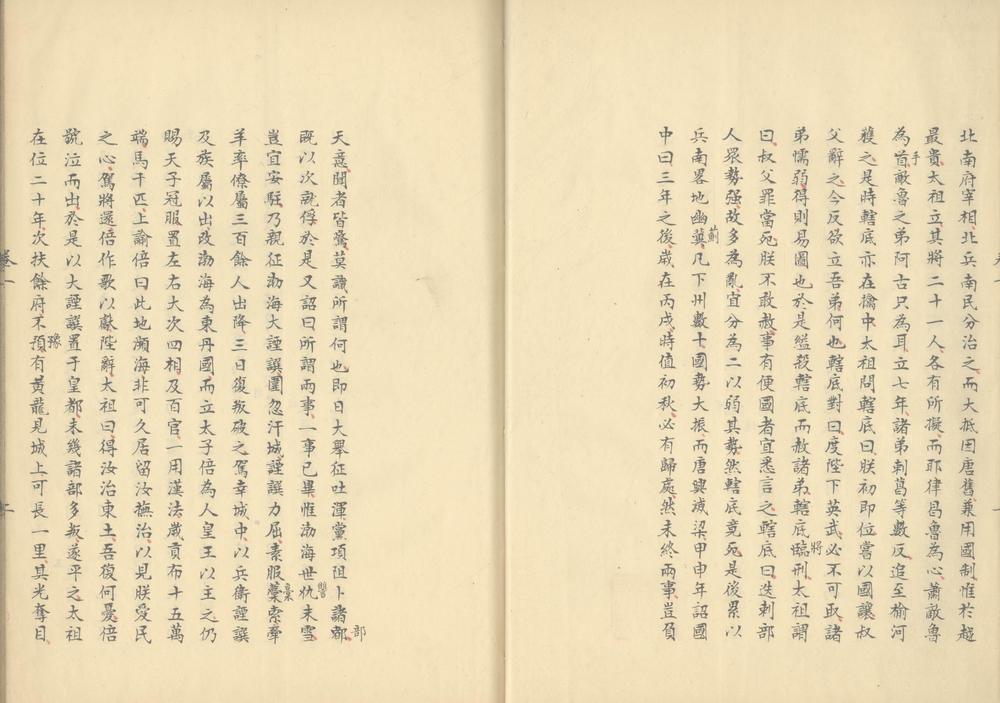 北南府宰相北兵南民分治之而大抵因唐舊兼用國制惟於越
最貴太祖立其將二十一人各有所擬而耶律曷魯為心蕭敵魯
為首敵魯之弟阿古只為耳立七年諸弟剌葛等數反追至榆河
手
獲之是時轄底亦在擒中太祖問轄底曰朕初即位嘗以國讓叔
父辭之今反欲立吾弟何也轄底對曰度陛下英武必不可取諸
弟懦弱得則易圖也於是縊殺轄底而赦諸弟轄底臨刑太祖謂
將
曰叔父罪當死朕不敢赦事有便國者宜悉言之轄底曰迭剌部
人眾勢强故多為亂宜分為二以弱其勢然轄底竟死是後累以
兵南畧地幽冀凡下州數十國勢大振而唐興滅梁甲申年詔國
薊
中曰三年之後歲在丙戌時值初秋必有歸處然未終兩事豈負
天意聞者皆驚莫識所謂何也即日大舉征吐渾黨項阻卜諸部
部
既以次就俘於是又詔曰所謂兩事一事已畢惟勃海世仇未雪
讐
豈宜安駐乃親征勃海大諲譔圍忽汗城諲譔力屈素服藁索牽
稾
羊率僚屬三百餘人出降三日復叛破之駕幸城中以兵衛諲譔
及族屬以出改渤海為東丹國而立太子倍為人皇王以主之仍
賜天子冠服置左右大次四相及百官一用漢法歲貢布十五萬
端馬千匹上諭倍曰此地瀕海非可久居留汝撫治以見朕愛民
之心駕將還倍作歌以獻陛辭太祖曰得汝治東土吾復何憂倍
號泣而出於是以大諲譔置于皇都未幾諸部多叛遂平之太祖
在位二十年次扶餘府不預有黃龍見城上可長一里其光奪目
豫
卷一